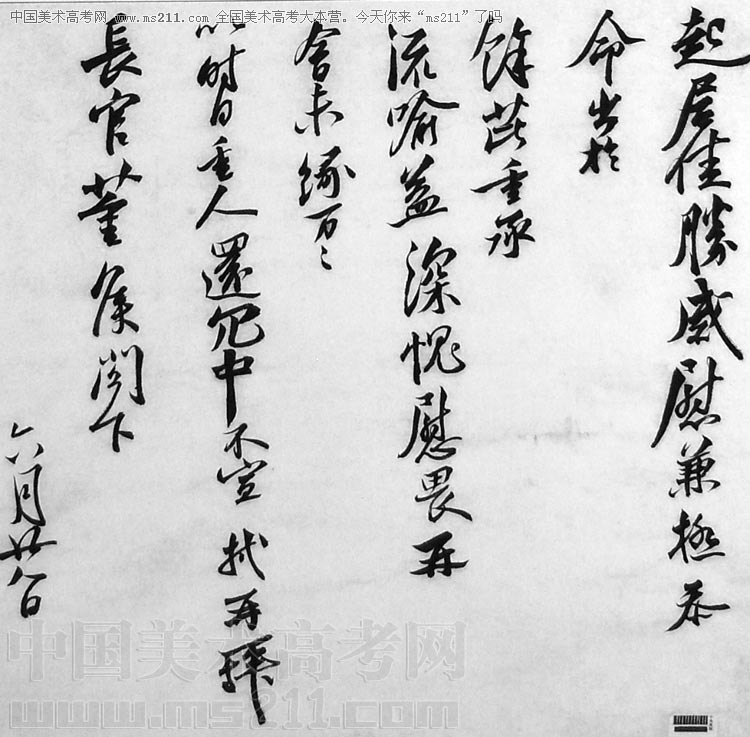 中国美术高考网 www.ms211.com 全国美术高考大本营。今天你来“ms211”了吗
起居佳勝感慰兼極忝
命出於
餘芘重承
流喻益深愧慰畏再
會未緣万〻
以時自重人還冗中不宣 軾再拜
長官董侯閤下
六月廿八日
中国美术高考网
www.ms211.com